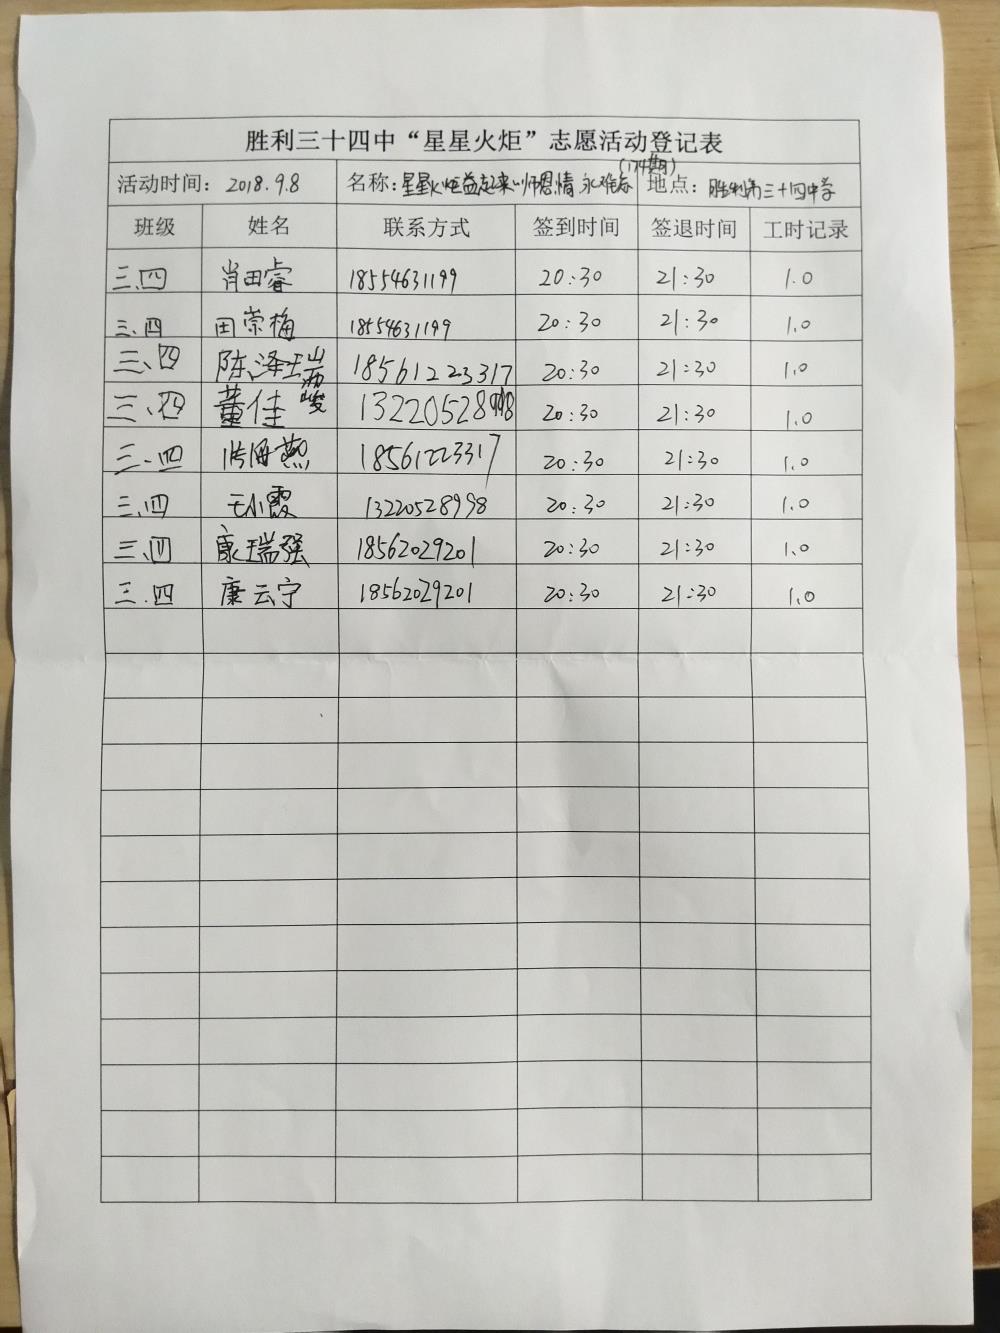 胜利三十四中“星星火炬”志愿活动登记表
(174期)
活动时间：2018.9.8 名称：星星火炬益起来师恩情永难忘 地点：胜利第三十四中学
班级 姓名 联系方式 签到时间 签退时间 工时记录
三.四 肖田睿 18554631199 20:30 21:30 1.0
三.四 田崇梅 18554631199 20:30 21:30 1.0
三、四 陈泽瑞 18561223317 20:30 21:30 1.0
三、四 董佳峻 13220528998 20:30 21:30 1.0
三.四 燕 18561223317 20:30 21:30 1.0
三.四 王小霞 13220528998 20:30 21:30 1.0
三.四 康瑞强 18562029201 20:30 21:30 1.0
三.四 康云宁 18562029201 20:30 21:30 1.0